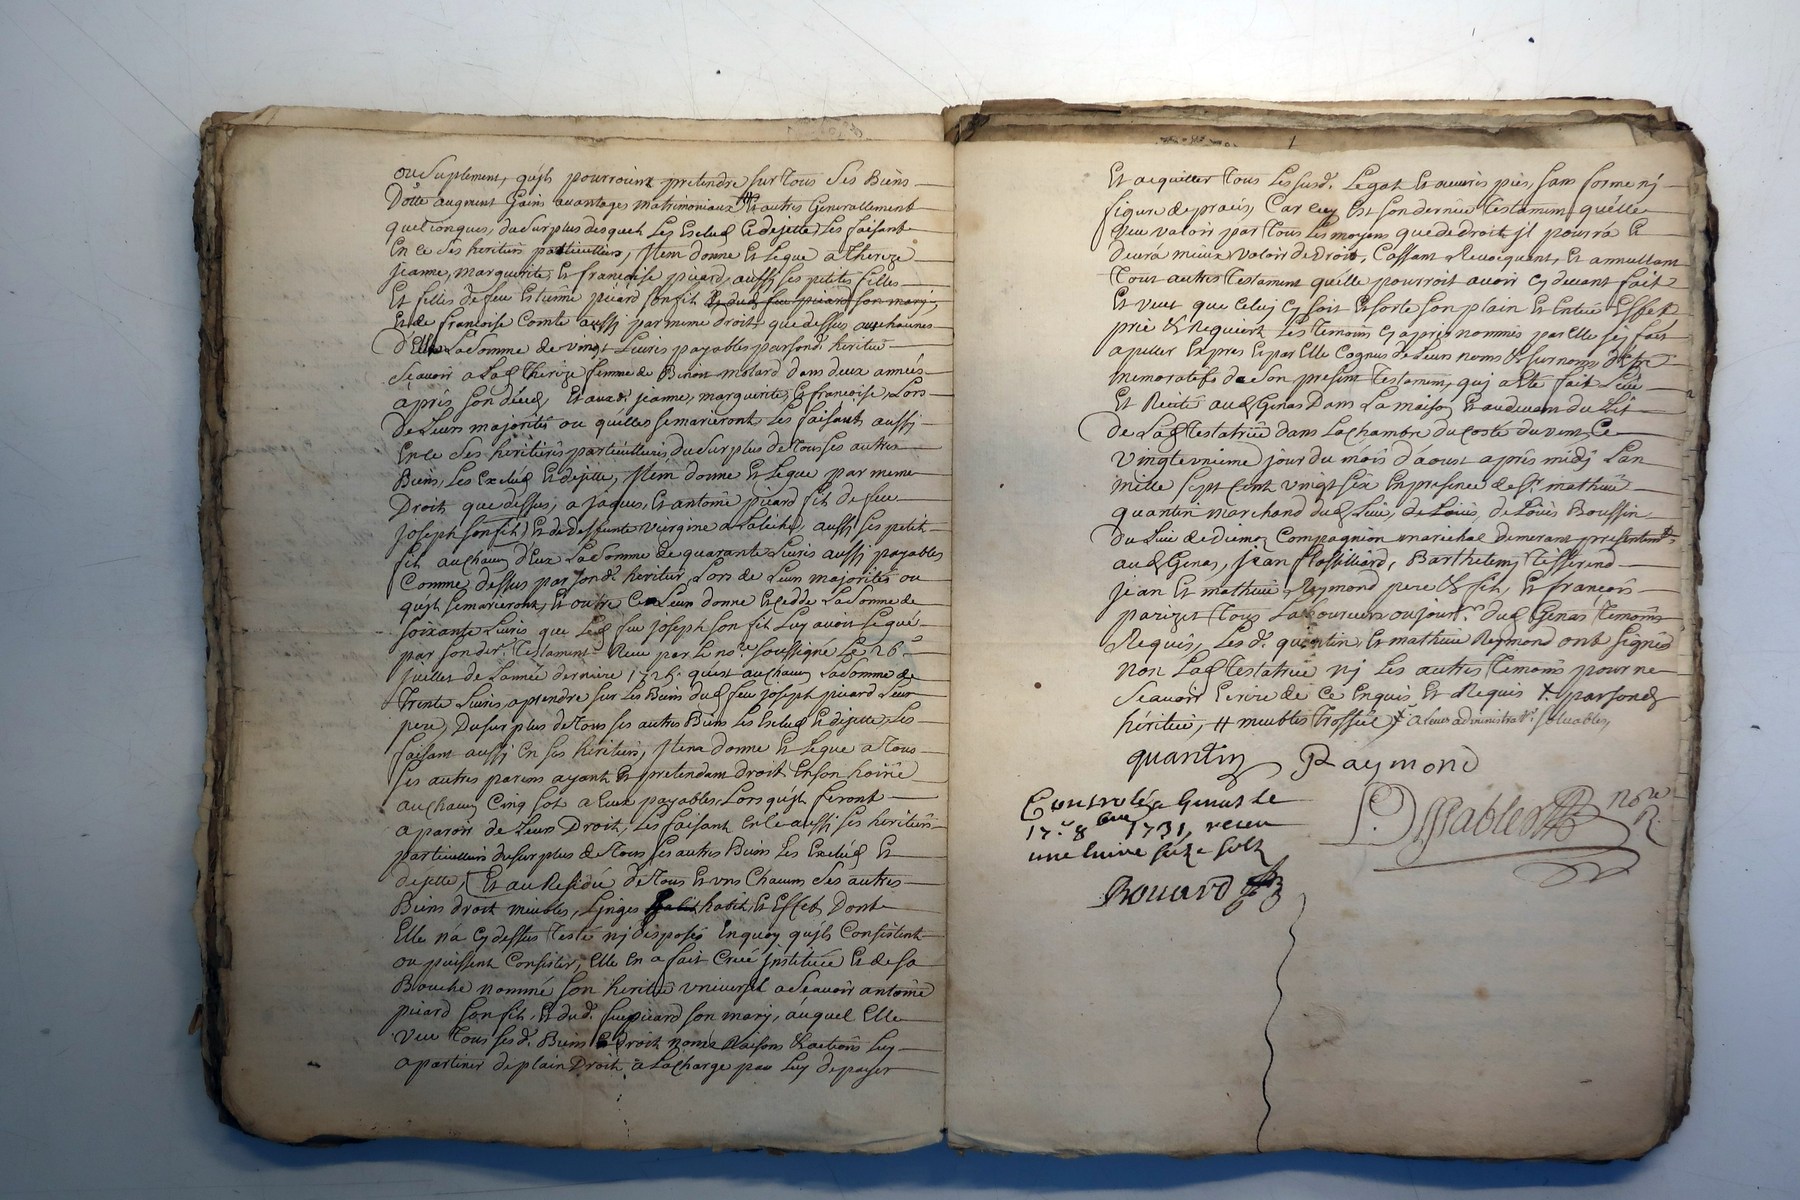 ou suplement, quils pourroient pretendre sur tous ses Biens
Dotte augment gains avantages matrimoniaux # Et autres Generallement
quelconques, du surplus desquels Les Exclud Et dejette, Les faisant
En ce ses heritiers particulliers, Item donne Et Legue a Thereze
jeanne, marguerite, Et françoise picard, aussi ses petites filles
Et filles de feu Estienne picard son fils Et dud. feu picard son mary,
Et de françoise Comte aussi par meme droit que dessus a chacunes
d'Elles La somme de vingt Livres payables par sond. heritier
sçavoir a Lad. Thereze femme de Benoit molard dans deux années
apres son déced, Et auxd. jeanne, marguerite, Et françoise, Lors
de Leurs majorités ou quelles se marieront Les faisants aussi
En ce ses heritieres particullieres du surplus de tous ses autres
Biens, Les Exclud Et dejette, Item donne Et Legue par meme
Droit que dessus, a jaques, Et antoine picard fils de feu
joseph son fils, Et de deffunte viergine a Laleche, aussi ses petits
fils a chacun d'Eux La somme de quarante Livres aussi payables
Comme dessus par sond. heritier Lors de Leurs majorités ou
quils se marieront, Et outre Ce Leur donne Et Cedde La somme de
soixante Livres que Led. feu joseph son fils Luy avoit Legué
par son der. Testament Receu par Le nore. soussigné Le 26e.
juillet de L'année derniere 1725. quest a chacun La somme de
Trente Livres a prendre sur Les Biens dud. feu joseph picard Leur
pere, Du surplus de tous ses autres Biens Les Exclud Et dejette, Les
faisant aussi En ses heritiers, Item donne Et Legue a tous
ses autres parens ayant Et pretendant droit En son hoirie
a chacun Cinq sols a Eux payables Lors quils feront
aparoir de Leurs Droit, Les faisant En ce aussi ses heritiers
particulliers du surplus de tous ses autres Biens Les Exclud Et
dejette, Et au Residu de tous Et uns Chacuns ses autres
Biens droit meubles, Linges habits Et Effets Dont
Elle n'a Cy dessus Testé ny disposé En quoy quils Consistent
ou puissent Consister, Elle En a fait Créé jnstitué Et de sa
Bouche nommé son heritier universel a sçavoir antoine
picard son fils, Et dud. feu picard son mary, auquel Elle
veut tous sesd. Biens Droit noms Raisons & actions Luy
apartenir de plain Droit a La Charge par Luy de payer
Et acquitter tous Les susd. Legat Et œuvres pies, sans forme nj
figure de procés, Car Cecy Est son dernier Testament quelle
veut valoir par tous Les moyens que de droit jl pourra Et
devra mieux valoir de Droit, Cassant Revocquant, Et annullant
tous autres Testament quelle pourroit avoir Cy devant fait
Et veut que Celuy Cy soit Et sorte son plain Et Entier Effet
prie & Requiert Les temoins Cy aprés nommés par Elle icy fait
apeller Exprés Et par Elle Cognus de Leurs noms & surnoms d'Etre
memoratifs de son present Testament, quj a Eté fait Leu
Et Recité aud. Genas Dans La maison Et au devant du Lit
de Lad. Testatrice dans La Chambre du Costé du vent, Ce
vingtunieme jour du mois d'aoust aprés midj Lan
mille sept Cent vingt six En presence de sr. mathieu
quantin marchand dud. Lieu, de Loüis, de Loüis Boussin
du Lieu de Diemoz Compagnion marechal demeurant presentemt.
aud. Genas, jean flassilliard, Barthelemy Tisserend
jean Et mathieu Reymond pere & fils, Et françois
parizet tous Laboureurs ou jourrs. dud. Genas Temoins
Requis, Les d. quantin, Et mathieu Reymond ont signés
non Lad. Testatrice nj Les autres Temoins pour ne
sçavoir Ecrire de Ce Enquis Et Requis + par sond.
héritier, # meubles Trossés ⨯ a Leurs administratrs. solvables,
quantin Raymond
Controlé a Genas Le
17e. 8bre 1731, receu
une livre seize solz
nore. R.
Rouard